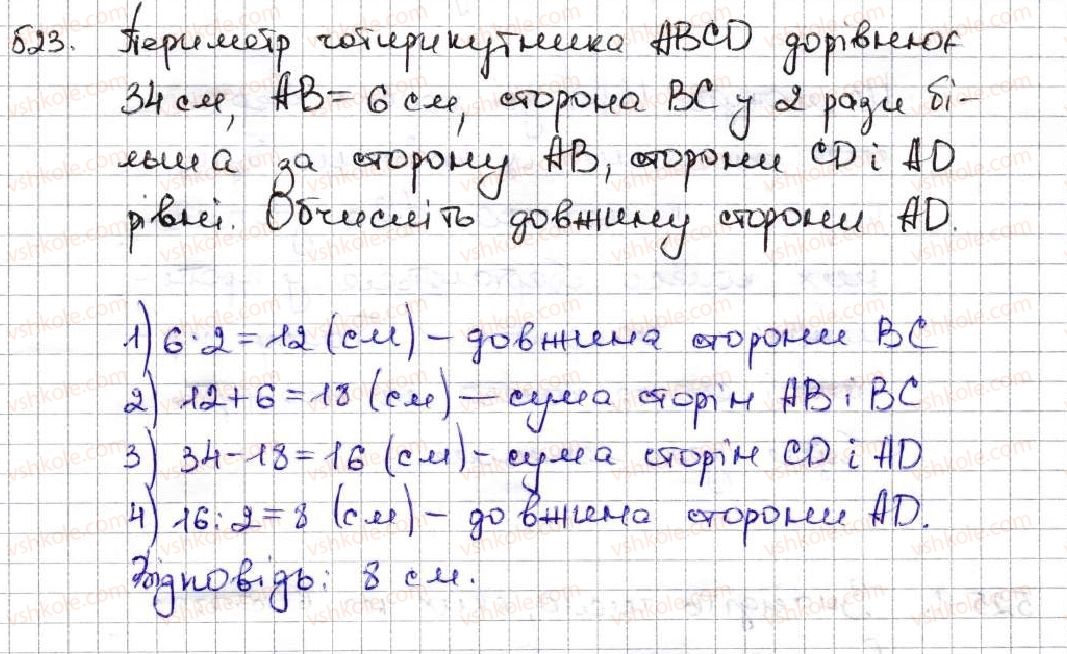 523. Периметр чотирикутника ABCD дорівнює
34 см, AB = 6 см, сторона BC у 2 рази бі-
льша за сторону AB, сторони CD і AD
рівні. Обчисліть довжину сторони AD.
1) 6·2=12 (см) – довжина сторони BC
2) 12+6=18 (см) – сума сторін AB і BC
3) 34-18=16 (см) – сума сторін CD і AD
4) 16:2=8 (см) – довжина сторони AD.
Відповідь: 8 см.